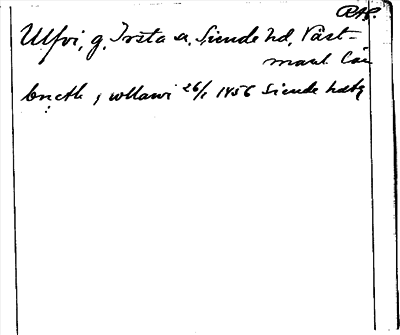 RAP.
Ulfvi, g, Irsta s, Siende hd, Väst-
manl län
Bencth j wllawi 26/1 1456 Siende hdtg